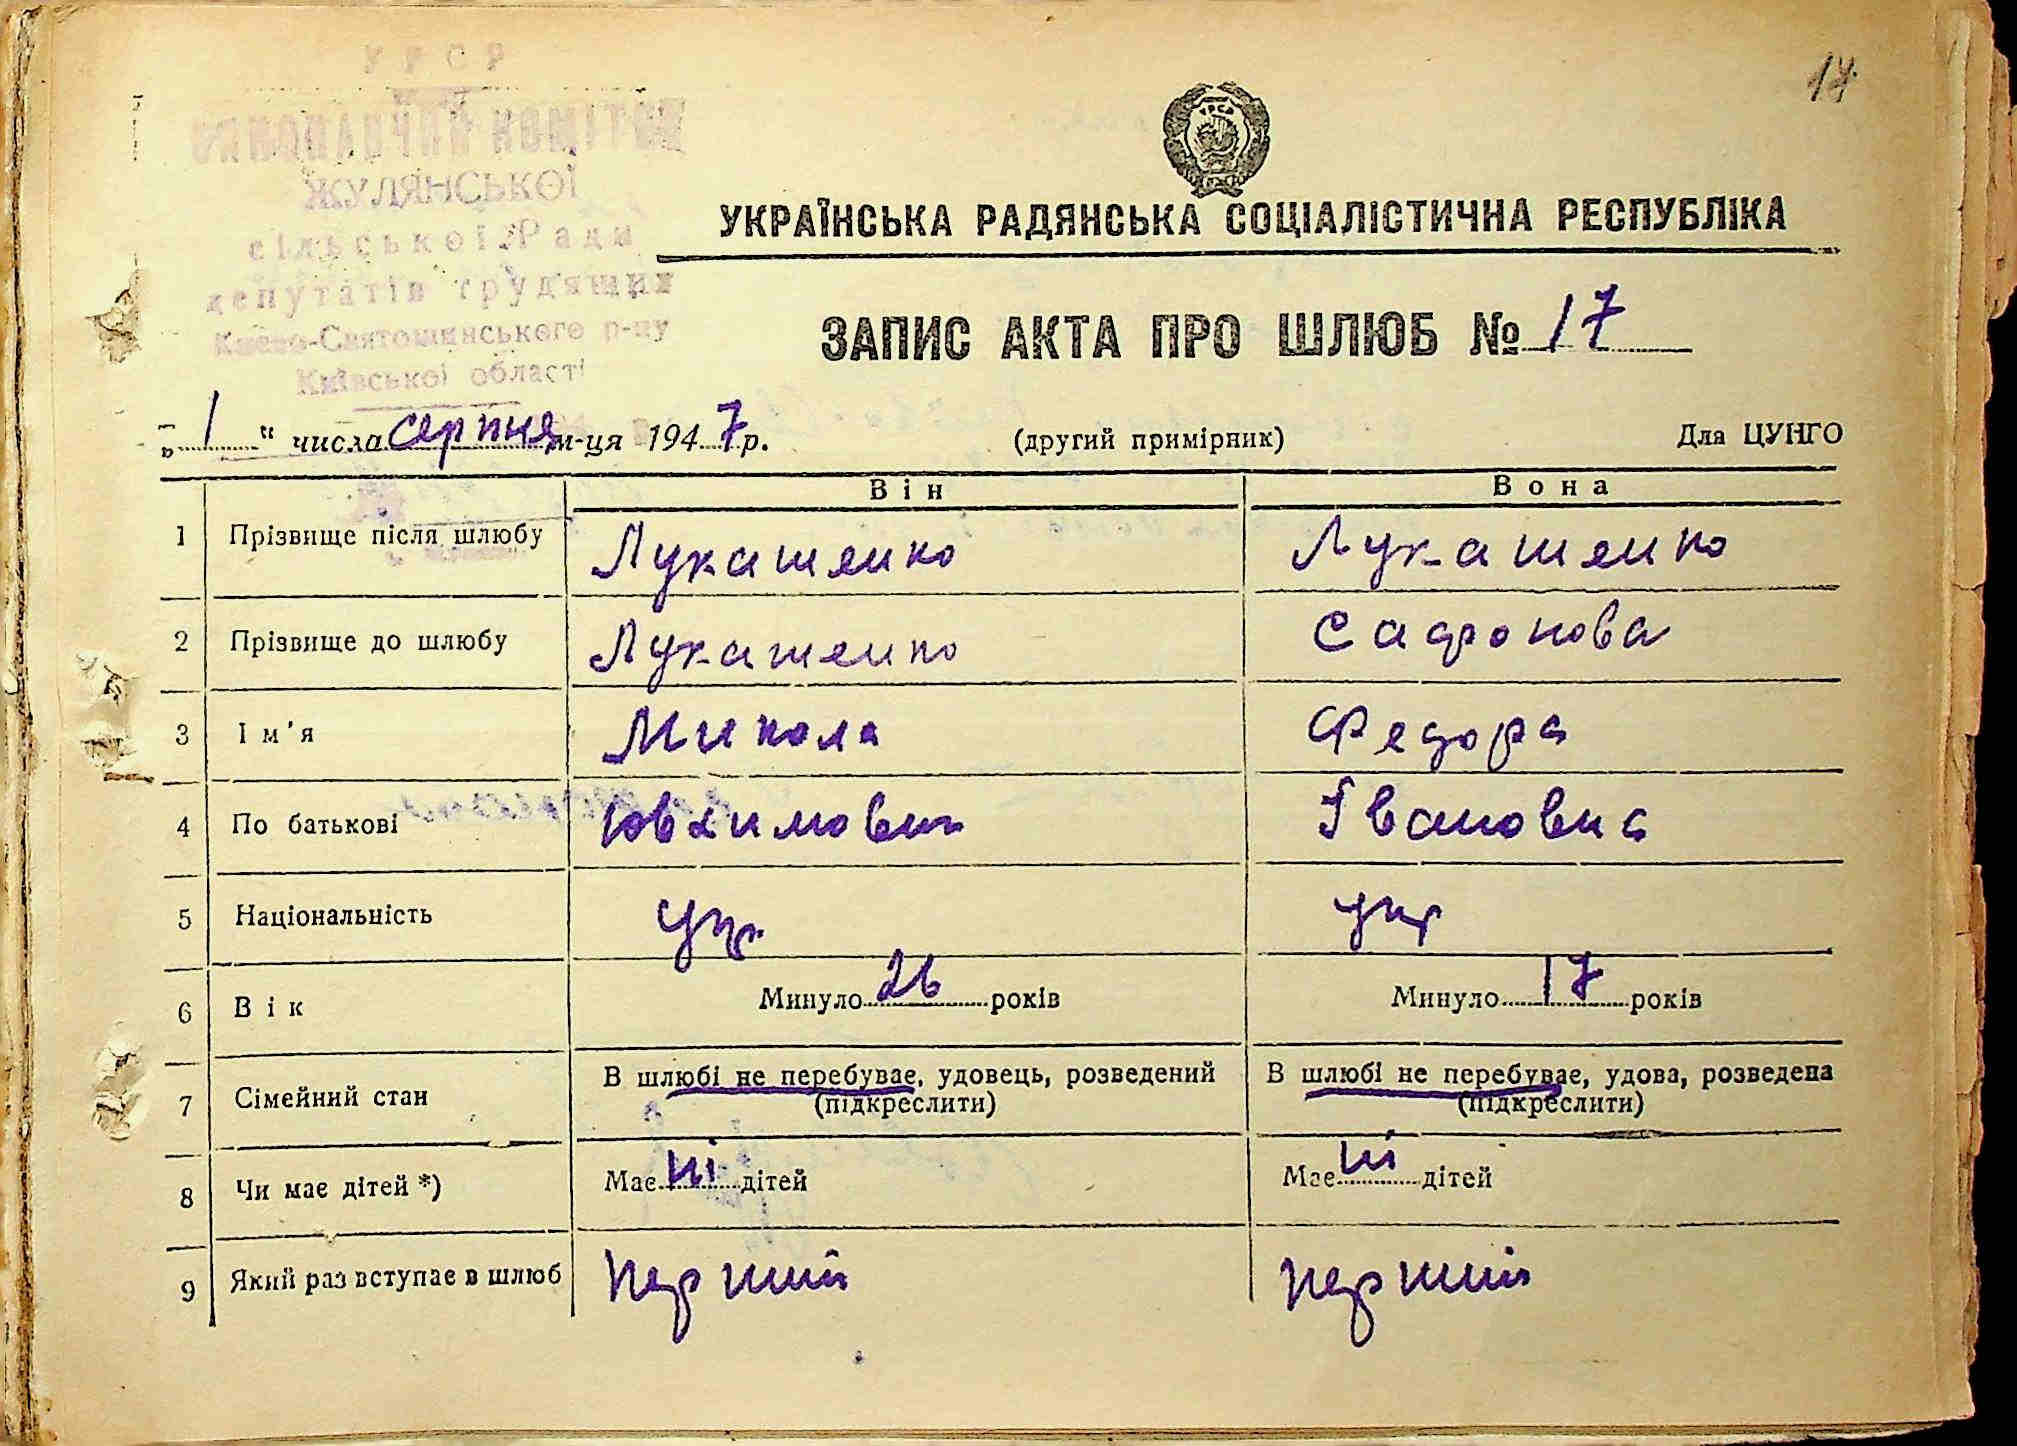 УРСР
14
ВИКОНАВЧИЙ КОМІТЕТ
ЖУЛЯНСЬКОЇ
сільської Ради
депутатів трудящих
Києво-Святошинського р-ну
Київської області
УРСР
УКРАЇНСЬКА РАДЯНСЬКА СОЦІАЛІСТИЧНА РЕСПУБЛІКА
ЗАПИС АКТА ПРО ШЛЮБ № 17
„ 1 “ числа серпня м-ця 1947 р. (другий примірник) Для ЦУНГО
Він Вона
1 Прізвище після шлюбу Лукашенко Лукашенко
2 Прізвище до шлюбу Лукашенко Сафонова
3 Ім'я Микола Федора
4 По батькові Ювхимович Івановна
5 Національність укр укр
6 Вік Минуло 26 років Минуло 17 років
7 Сімейний стан В шлюбі не перебуває, удовець, розведений (підкреслити) В шлюбі не перебуває, удова, розведена (підкреслити)
8 Чи має дітей *) Має ні дітей Має ні дітей
9 Який раз вступає в шлюб перший перший